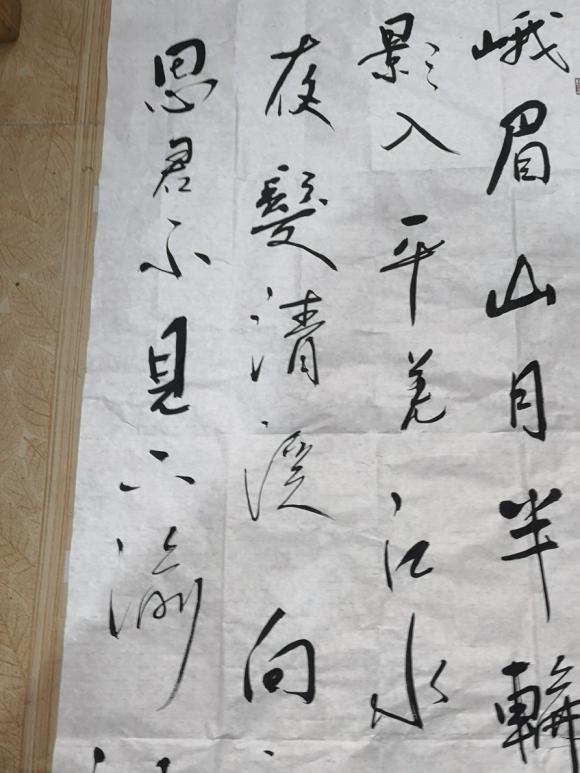 峨眉山月半輪
影入平羌江水
夜發清溪向
思君不見下渝